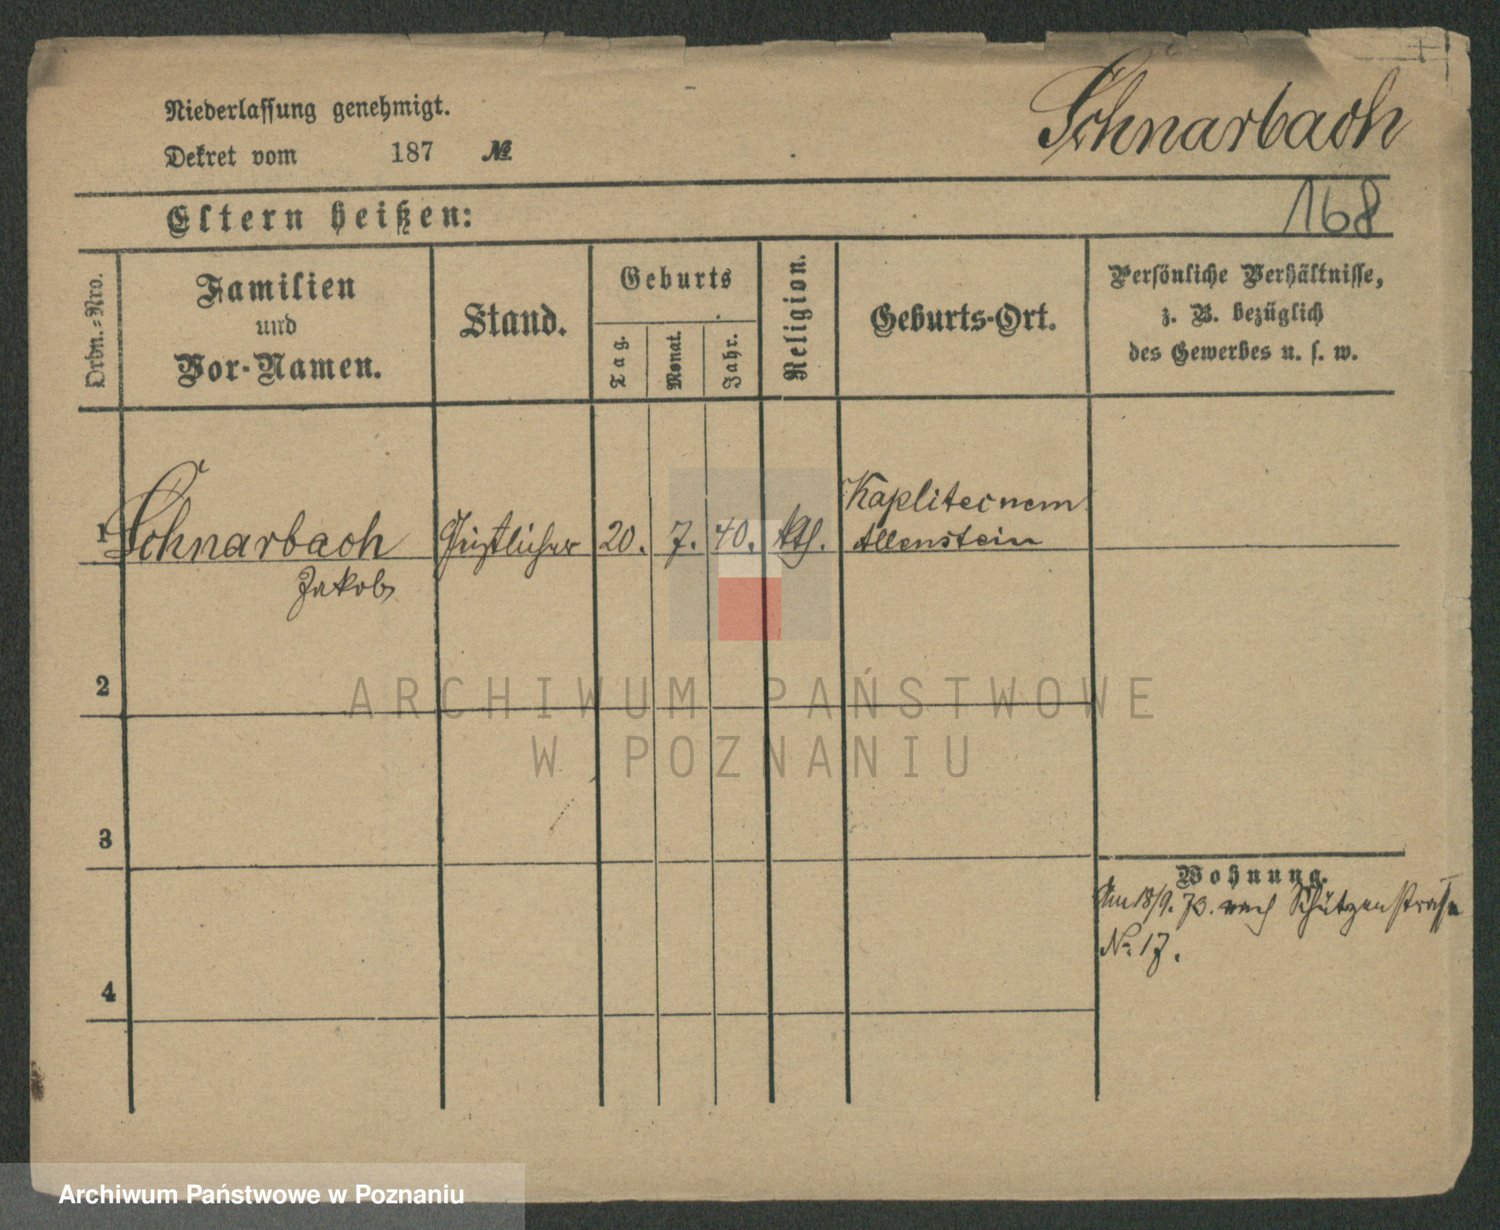 Niederlassung genehmigt.
Schnarbach
Dekret vom 187 №
Eltern heißen:
168
Ordn.-Nro.
Familien
und
Vor-Namen.
Stand.
Geburts
Tag.
Monat.
Jahr.
Religion.
Geburts-Ort.
Persönliche Verhältnisse,
z. B. bezüglich
des Gewerbes u. s. w.
1 Schnarbach Geistlicher 20. 7. 40. kth. Kaplitecnem
Allenstein
Jakob
2
ARCHIWUM PAŃSTWOWE
W POZNANIU
3
Wohnung.
Am 18/9. 73. nach Schützenstraße
No 17.
4
Archiwum Państwowe w Poznaniu